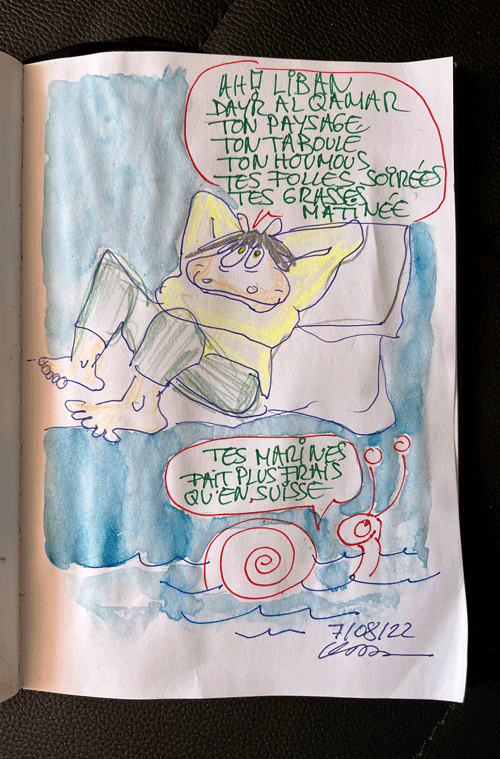 AH!! LIBAN
DAYR AL QAMAR
TON PAYSAGE
TON TABOULE
TON HOUMOUS
TES FOLLES SOIRÉES
TES GRASSES
MATINÉE
TES MARINES
FAIT PLUS FRAIS
QU'EN SUISSE
7/08/22